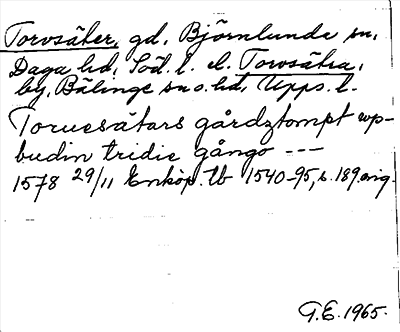 Torvsäter, gd, Björnlunda sn,
Daga hd, Söd. l. el. Torvsätra,
by, Bälinge sn o. hd, Upps. l.
Toruesätars gårdztompt wp-
budin tridie gångo ---
1578 29/11 Enköp. tb 1540-95, s. 189 orig.
G.E. 1965.